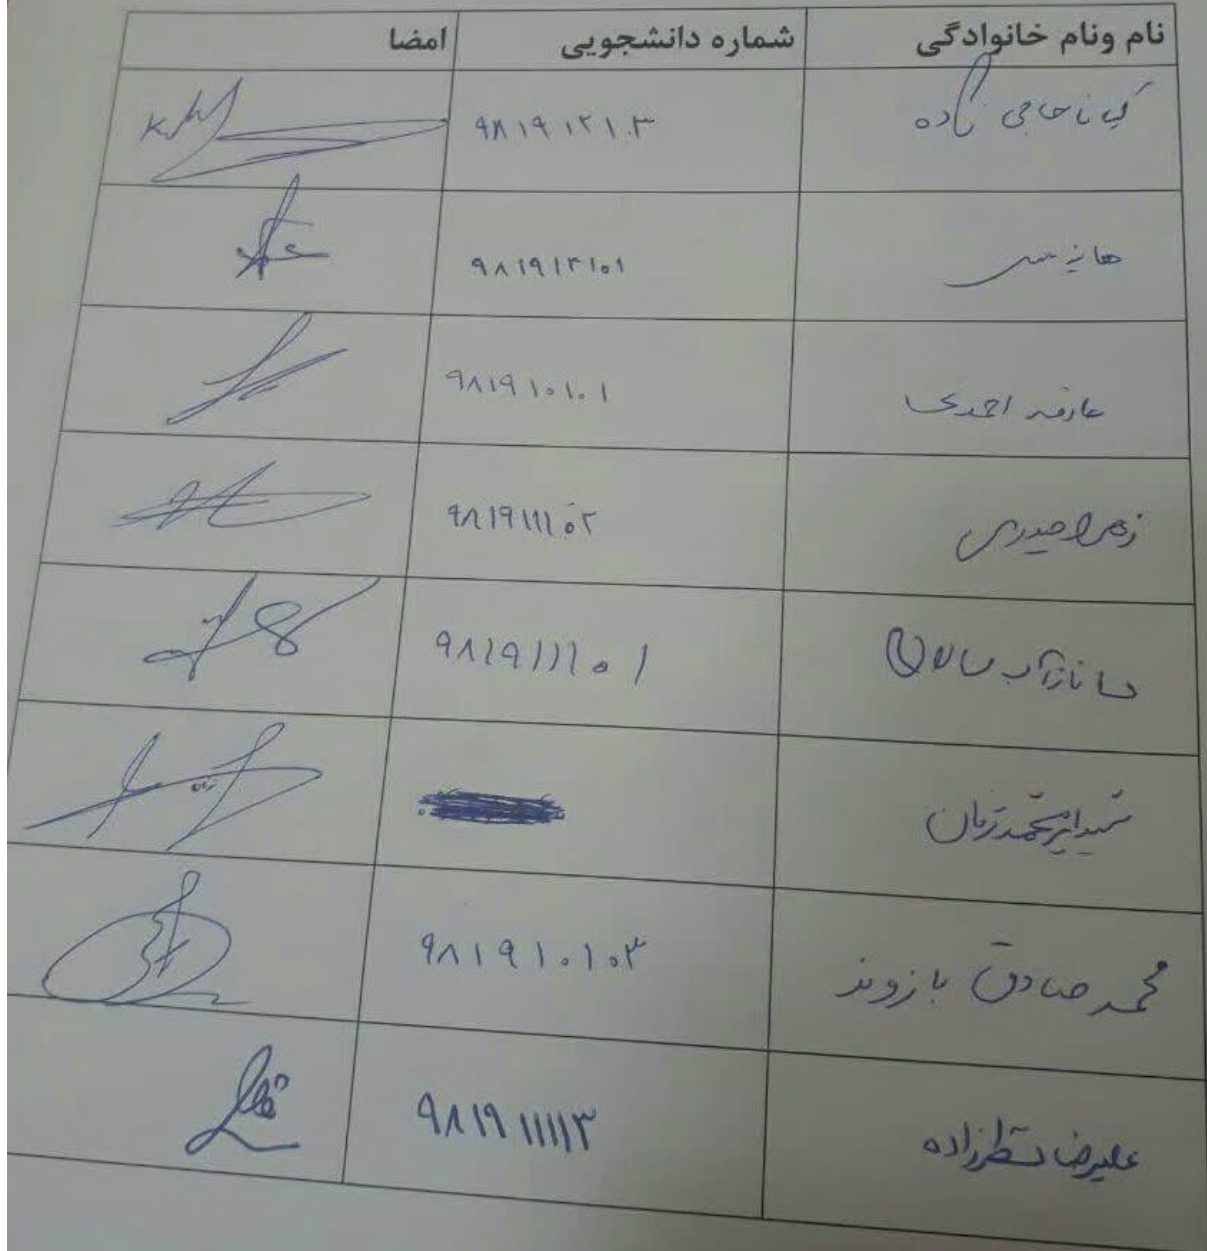 نام ونام خانوادگی شماره دانشجویی امضا
کیانا حاجی زاده ۹۸۱۹۱۲۱۰۳
هانیه ۹۸۱۹۱۲۱۰۱
عارفه احمدی ۹۸۱۹۱۰۱۰۱
زهرا حیدری ۹۸۱۹۱۱۱۰۲
ساناز ۹۸۱۹۱۱۱۰۱
محمد صادق بازوند ۹۸۱۹۱۰۱۰۳
علیرضا ۹۸۱۹۱۱۱۱۳